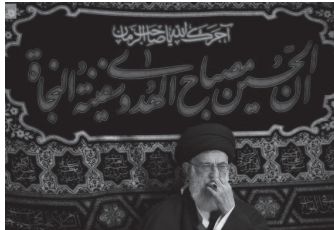 آجرک الله یا صاحب الزمان
ان الحسین مصباح الهدی و سفینة النجاة